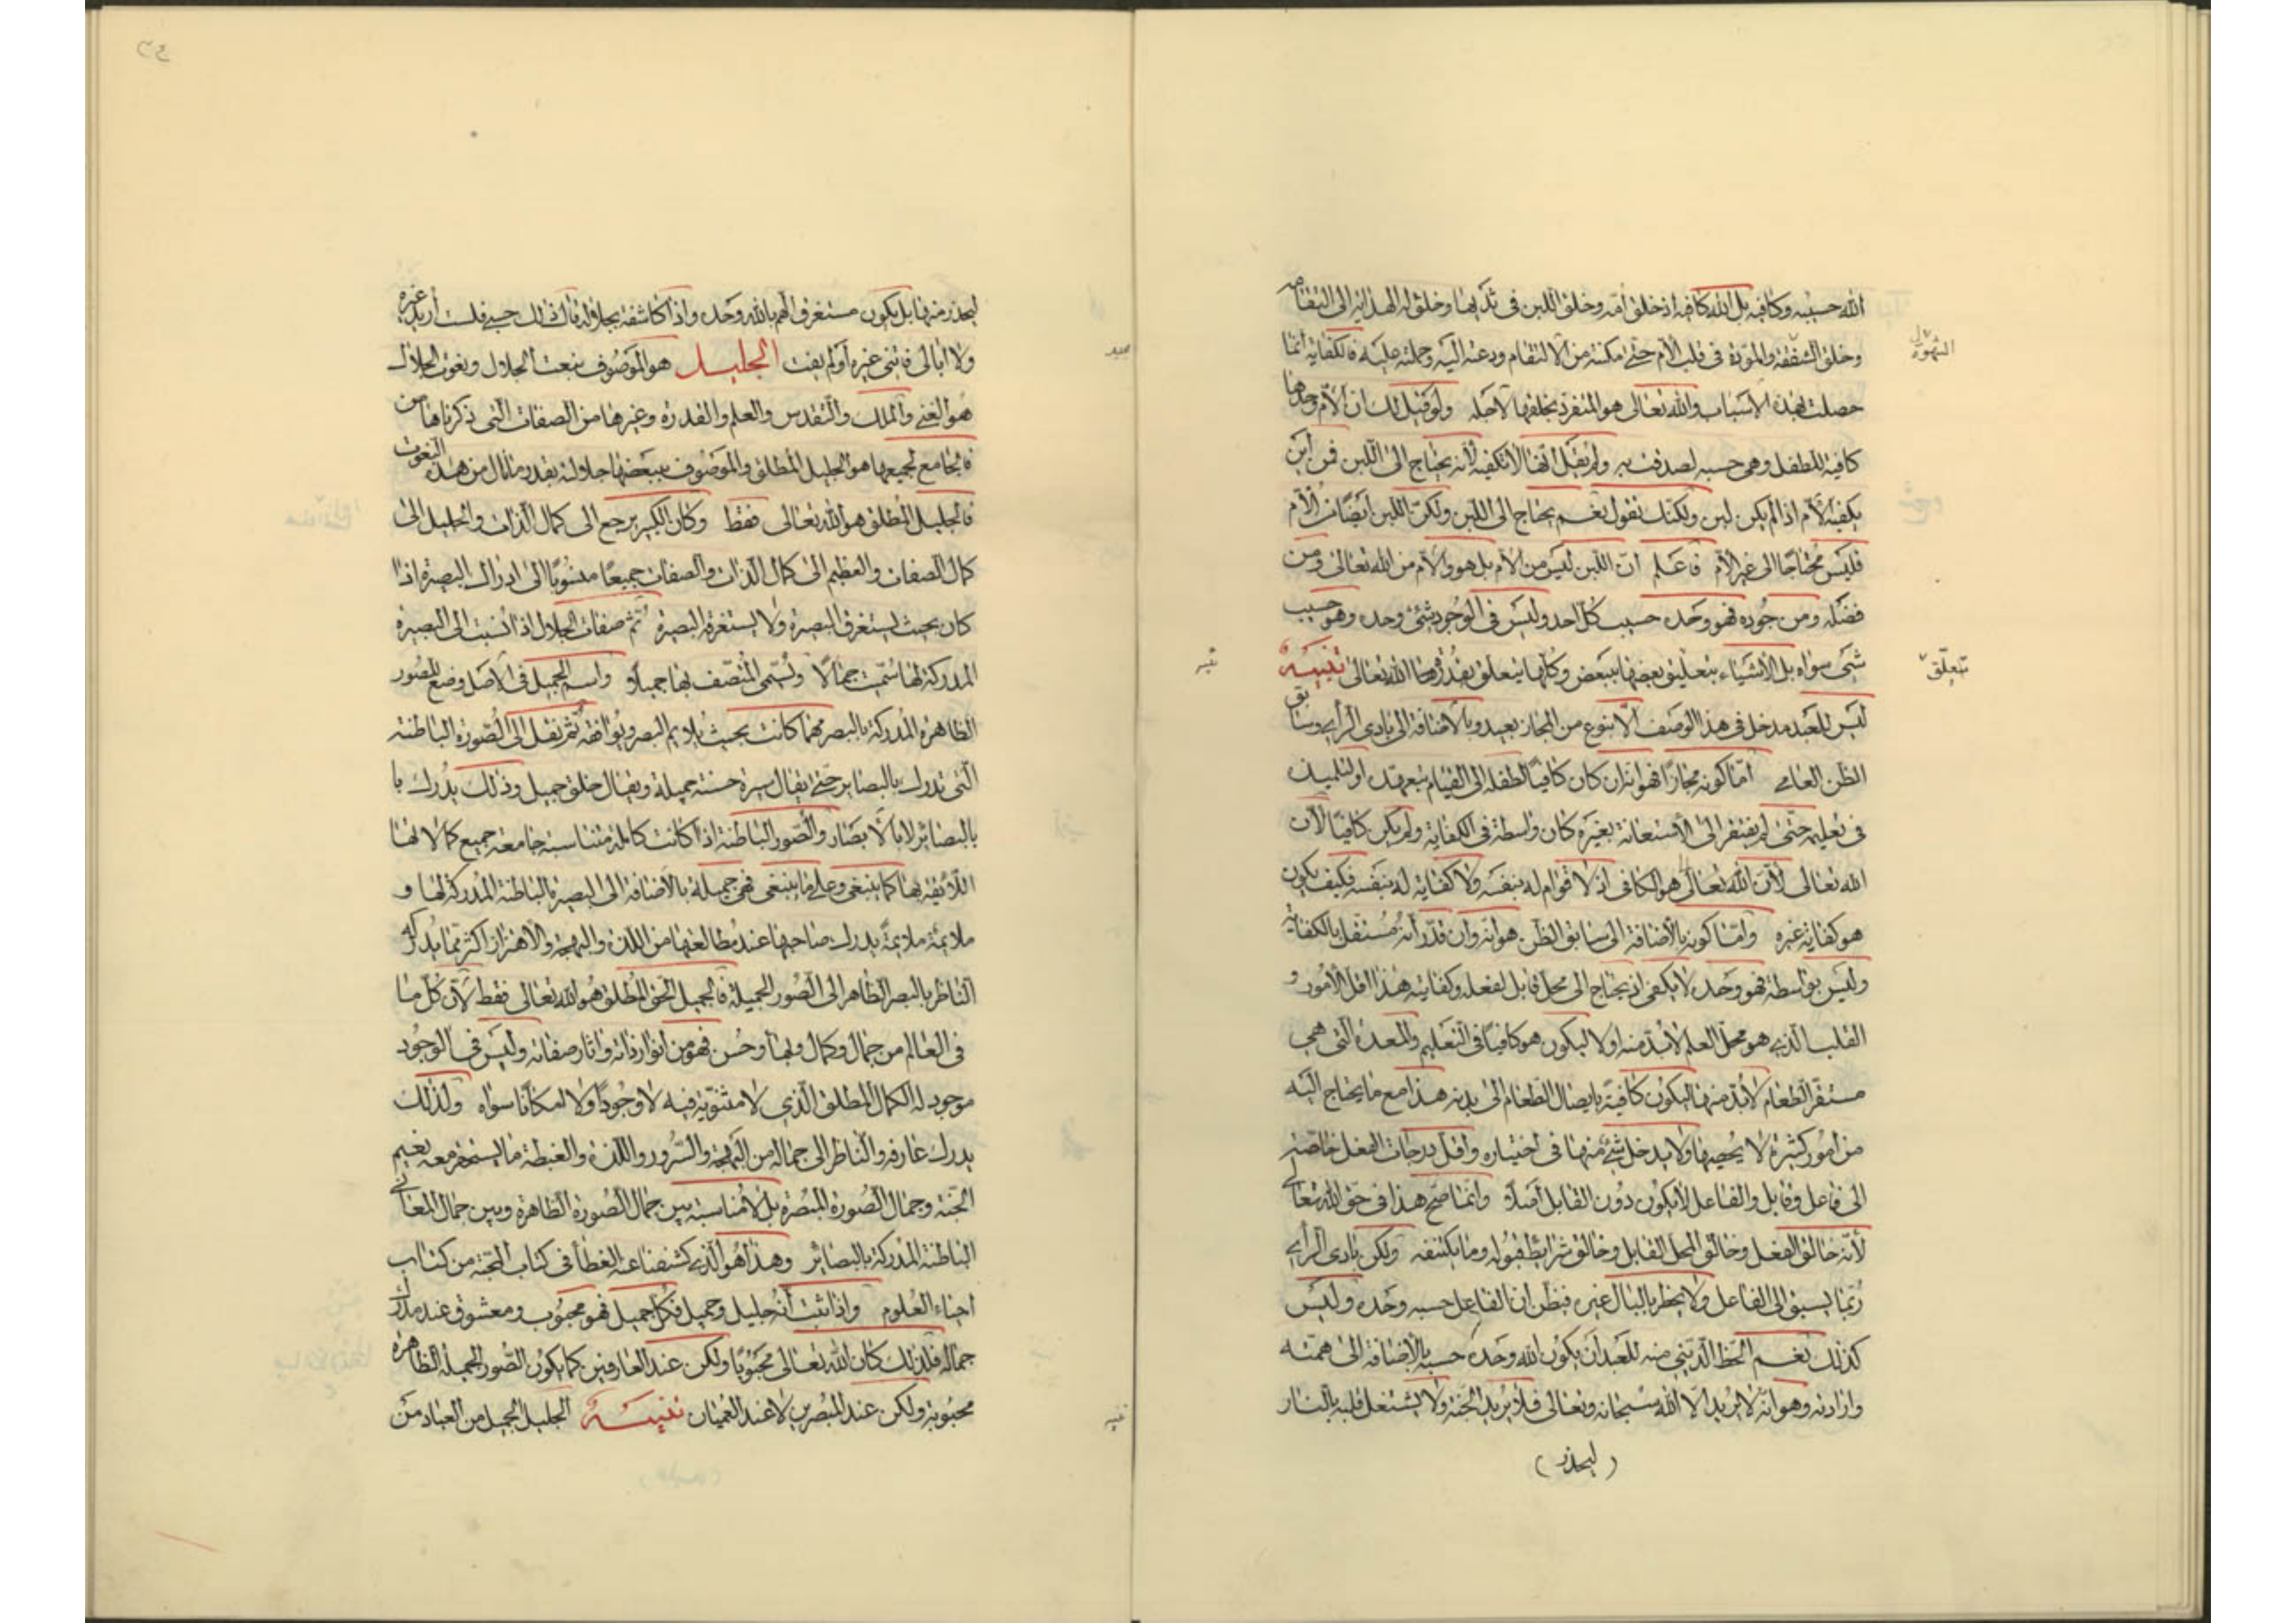 الله حسيبه وكافيه بل الله كافيه اذ خلق امه وخلق اللبن فى ثديها وخلق له الهداية الى التقامه
وخلق الشفقة والمودة فى قلب الام حتى مكنته من الالتقام ودعته اليه وحملته عليه فالكفاية انما
حصلت بهذه الاسباب والله تعالى هو المنفرد بخلقها لاجله ولو قيل لك ان الام وحدها
كافية للطفل وهى حسبه لصدقت به ولم تقل انها لا تكفيه لانه يحتاج الى اللبن فمن اين
يكفيه الام اذا لم يكن لبن ولكنك تقول نعم يحتاج الى اللبن ولكن اللبن ايضا من الام
فليس محتاجا الى غير الام فاعلم ان اللبن ليس من الام بل هو والام من الله تعالى ومن
فضله ومن جوده فهو وحده حسيب كل احد وليس فى الوجود شئ وحده وهو حسيب
شئ سواه بل الاشياء يتعلق بعضها ببعض وكلها يتعلق بقدرة الله تعالى تنبيه
ليس للعبد مدخل فى هذا الوصف الا بنوع من المجاز بعيد وبالاضافة الى بادى الرأى وسابق
الظن العامى اما كونه مجازا فهو انه ان كان كافيا لطفله الى القيام بتعهده او لتلميذه
فى تعليمه حتى لم يفتقر الى الاستعانة بغيره كان واسطة فى الكفاية ولم يكن كافيا لان
الله تعالى لان الله تعالى هو الكافى اذ لا قوام له بنفسه ولا كفاية له بنفسه فكيف يكون
هو كفاية غيره واما كونه بالاضافة الى سابق الظن هو انه وان قدر انه مستقل بالكفاية
وليس بواسطة فهو وحده لا يكفى اذ يحتاج الى محل قابل لفعله وكفايته هذا اقل الامور و
القلب الذى هو محل العلم لا بد منه اولا ليكون هو كافيا فى التعليم والمعدة التى هى
مستقر الطعام لا بد منها ليكون كافية بايصال الطعام الى بدنه هذا مع ما يحتاج اليه
من امور كثيرة لا يحصيها ولا يدخل شئ منها فى اختياره واقل درجات الفعل حاجته
الى فاعل وقابل والفاعل لا يكون دون القابل اصلا وانما صح هذا فى حق الله تعالى
لانه خالق الفعل وخالق المحل القابل وخالق شرائط قبوله وما يكتنفه ولكن بادى الرأى
ربما يسبق الى الفاعل ولا يخطر بالبال غيره فيظن ان الفاعل حسبه وحده وليس
كذلك نعم الحظ الدينى منه للعبد ان يكون الله وحده حسبه بالاضافة الى همته
وارادته وهو انه لا يريد الا الله سبحانه وتعالى فلا يريد الجنة ولا يشتغل قلبه بالنار
(ليحذر)
يتعلق
تنبيه
٢٤
ليحذر منها بل يكون مستغرق الهم بالله وحده واذا كاشفه بجلاله قال ذلك حسبى فلست اريد غيره
ولا ابالى فاتنى غيره او لم يفت الجليل هو الموصوف بنعت الجلال ونعوت الجلال
هو الغنى والملك والتقدس والعلم والقدرة وغيرها من الصفات التى ذكرناها من
فالجامع لجميعها هو الجليل المطلق والموصوف ببعضها جلالته بقدر ما نال من هذه النعوت
فالجليل المطلق هو الله تعالى فقط وكان الكبير يرجع الى كمال الذات والجليل الى
كمال الصفات والعظيم الى كمال الذات والصفات جميعا منسوبا الى ادراك البصيرة اذا
كان بحيث يستغرق البصيرة ولا يستغرقه البصيرة ثم صفات الجلال اذا نسبت الى البصيرة
المدركة لها سميت جمالا وتسمى المتصف بها جميلا واسم الجميل فى الاصل وضع للصور
الظاهرة المدركة بالبصر مهما كانت بحيث يلايم البصر ويوافقه ثم نقل الى الصورة الباطنة
التى تدرك بالبصاير حتى يقال سيرة حسنة جميلة ويقال خلق جميل وذلك يدرك با
بالبصائر لا بالابصار والصور الباطنة اذا كانت كاملة متناسبة جامعة جميع كمالاتها
اللائقة بها كما ينبغى وعلى ما ينبغى فهى جميلة بالاضافة الى البصيرة الباطنة المدركة لها و
ملائمة ملايمة يدرك صاحبها عند مطالعتها من اللذة والبهجة والاهتزاز اكثر مما يدركه
الناظر بالبصر الظاهر الى الصور الجميلة فالجميل الحق المطلق هو الله تعالى فقط لان كل ما
فى العالم من جمال وكمال وبهاء وحسن فهو من انوار ذاته واثار صفاته وليس فى الوجود
موجود له الكمال المطلق الذى لا مثنوية فيه لا وجودا ولا امكانا سواه ولذلك
يدرك عارفه والناظر الى جماله من البهجة والسرور واللذة والغبطة ما يستحقر معه نعيم
الجنة وجمال الصورة المبصرة بل لا مناسبة بين جمال الصورة الظاهرة وبين جمال المعانى
الباطنة المدركة بالبصائر وهذا هو الذى كشفنا عنه الغطاء فى كتاب المحبة من كتاب
احياء العلوم واذا ثبت انه جليل وجميل فكل جميل فهو محبوب ومعشوق عند مدرك
جماله فلذلك كان الله تعالى محبوبا ولكن عند العارفين كما يكون الصور الجميلة الظاهرة
محبوبة ولكن عند المبصرين لا عند العميان تنبيه الجليل الجميل من العباد من
تنبيه